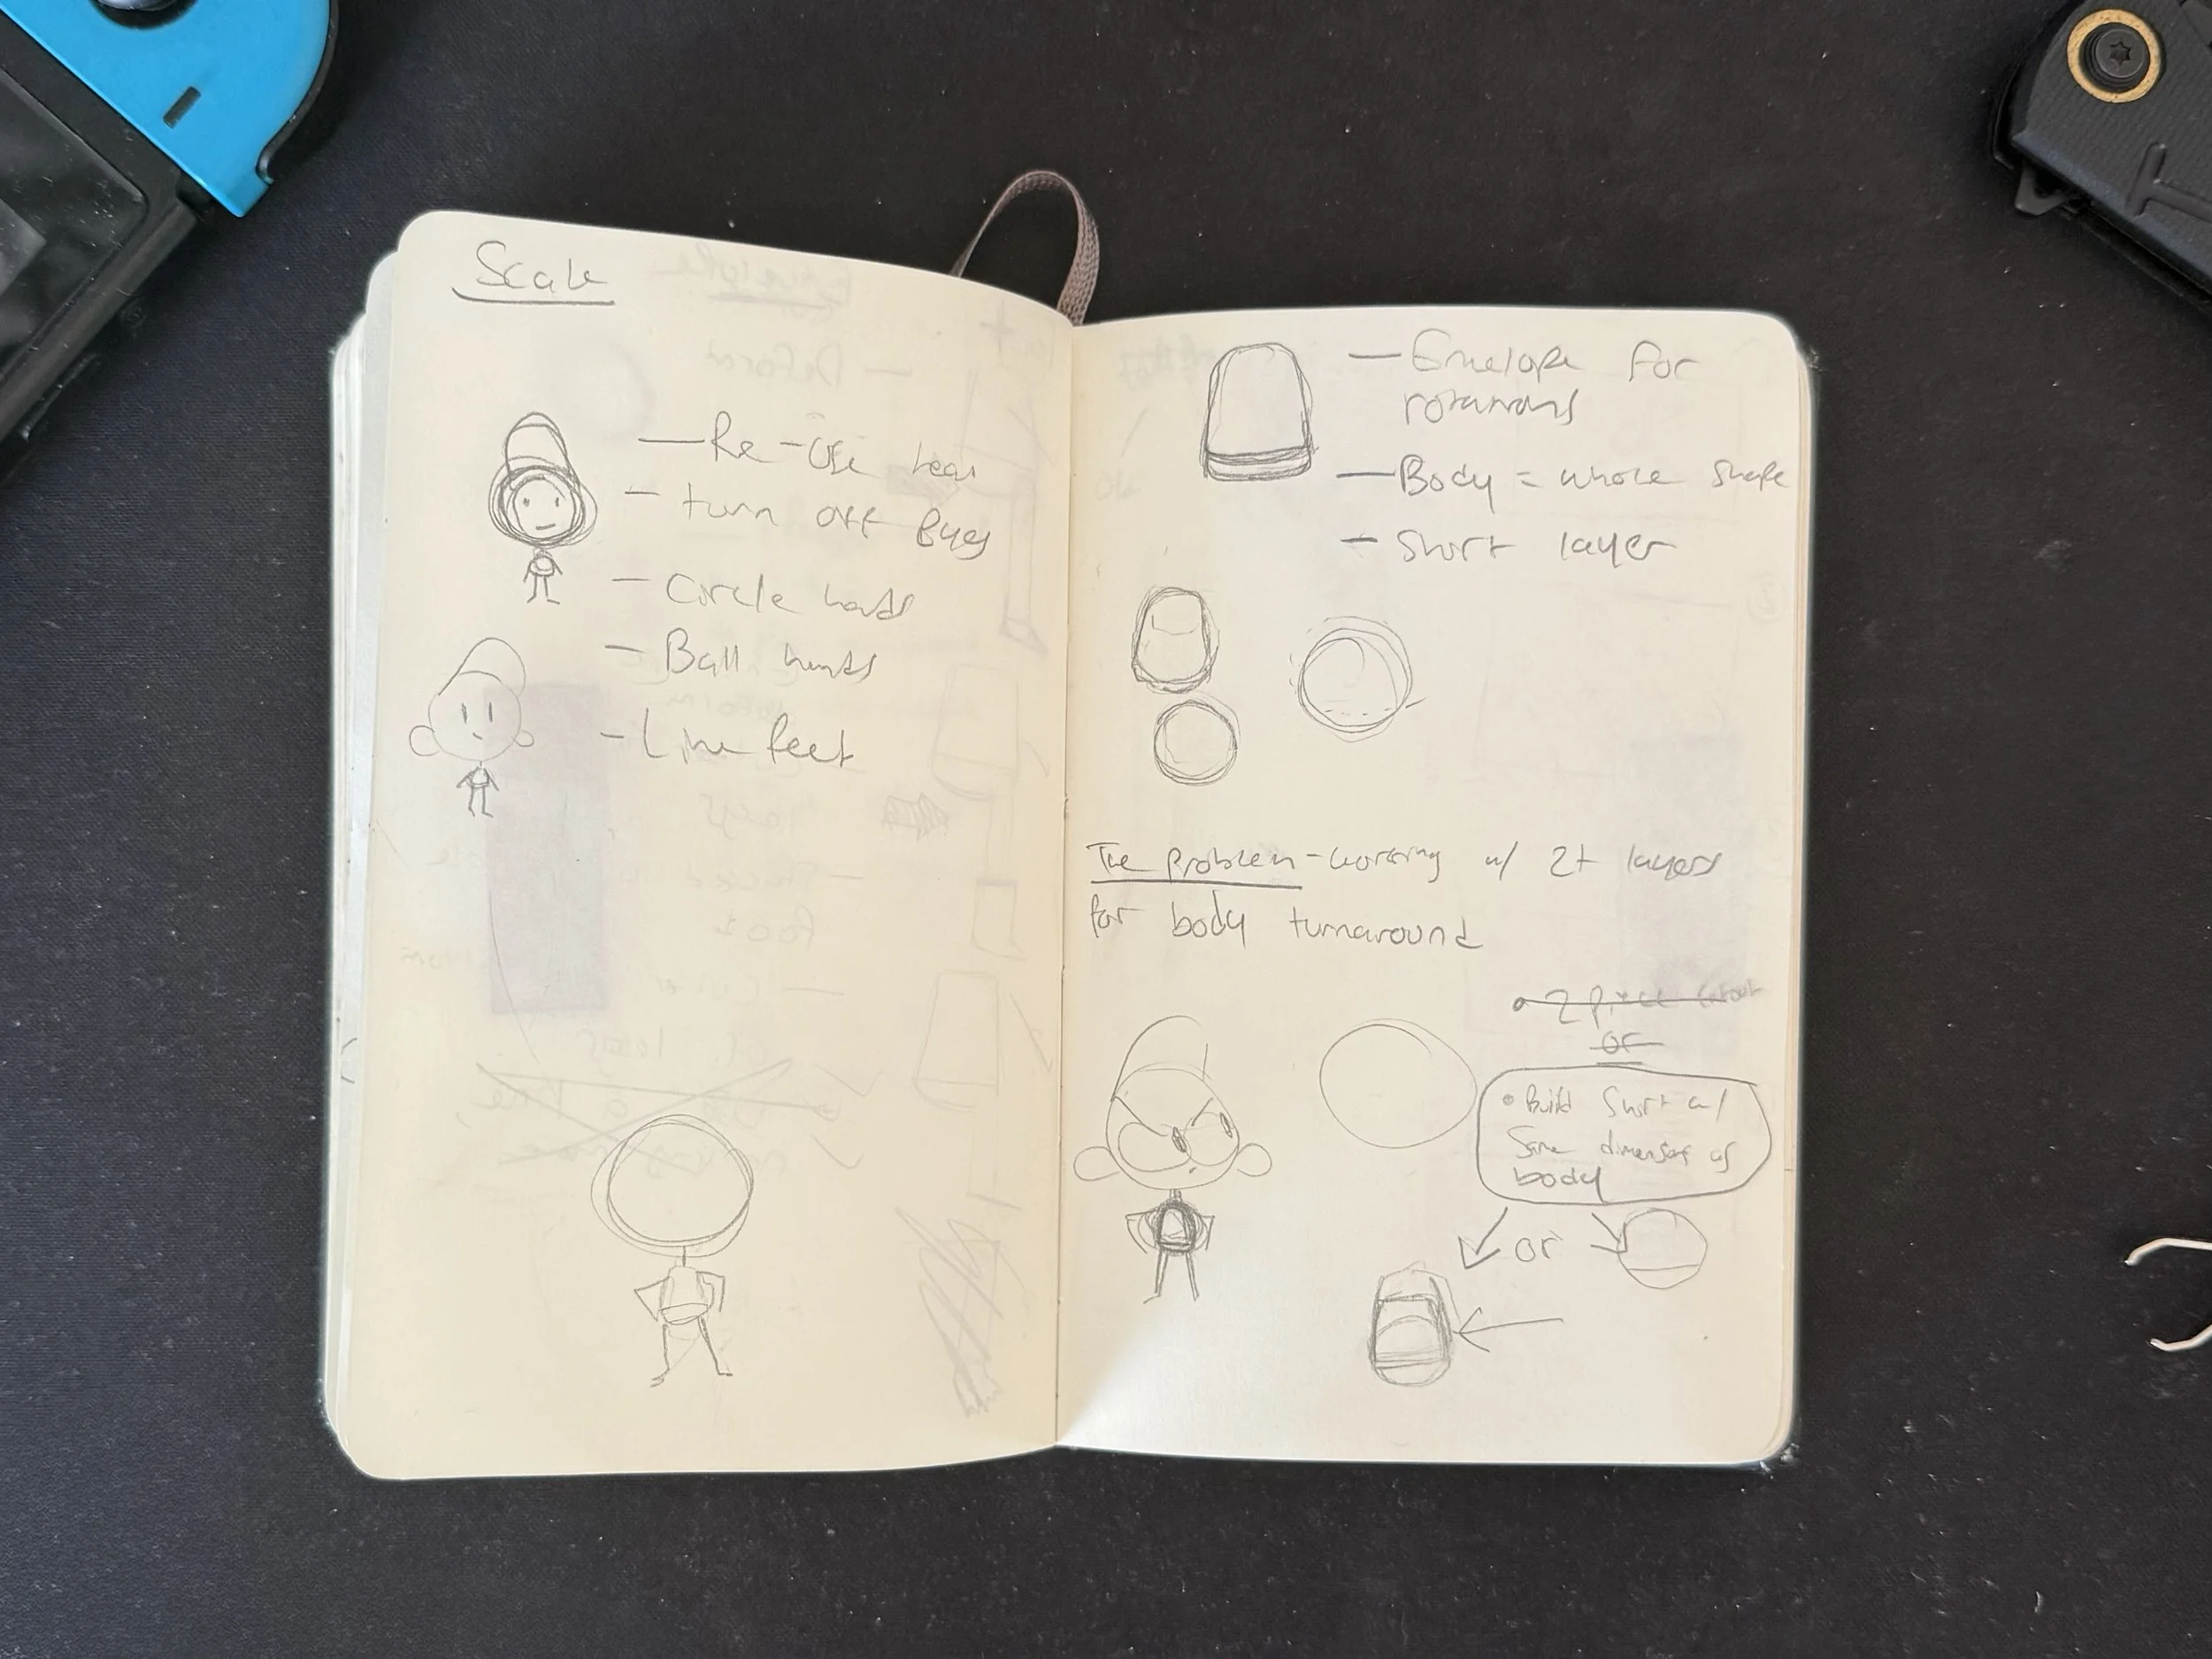 Scale
— Re-use head
- turn off Eyes
- Circle hands
- Ball hands
- Line feet
— Envelope for
rotations
— Body = whole shape
- Shirt layer
The Problem - working w/ 2+ layers
for body turnaround
• 2 piece
or
• Build Shirt w/
Same dimensions as
body
or